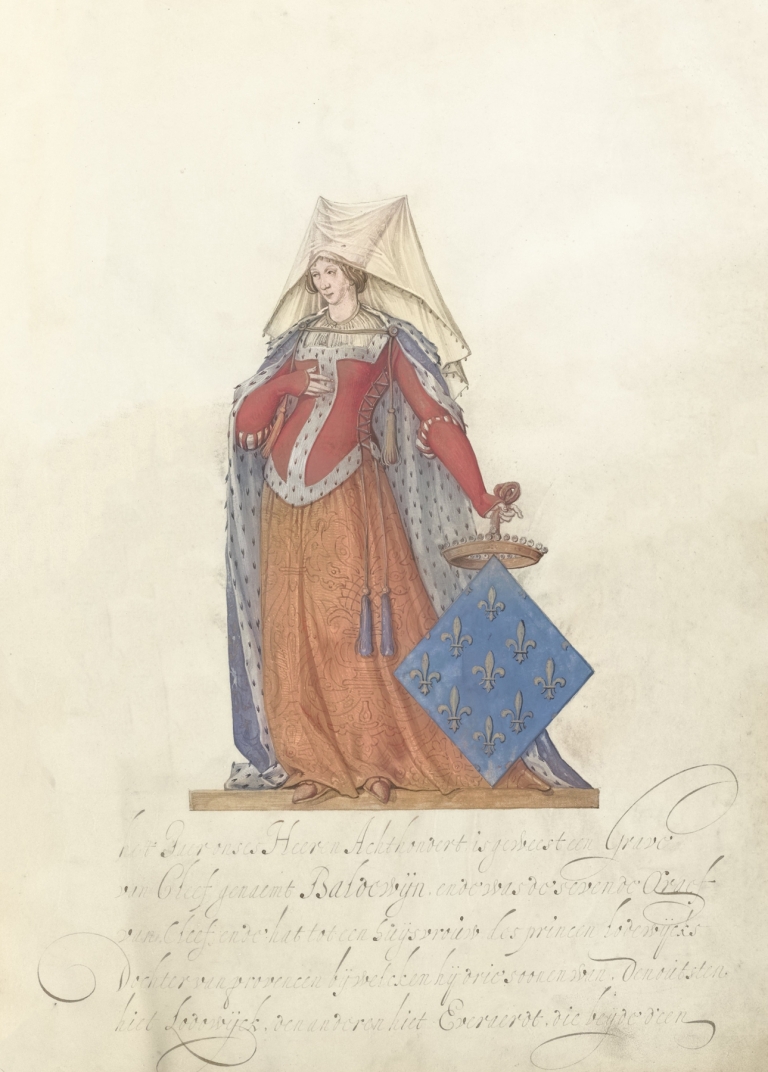 het Jaer onses Heeren Achthondert is geweest een Grave
van Cleef genaemt Baldewijn. ende was de sevende Graef
van Cleef, ende hat tot een huijsvrouw des princen Lodewijcks
Dochter van provencen bij welcken hij drie soonen wen, Den outsten
hiet Lodewijck, den anderen hiet Everaerdt, die beijde deen